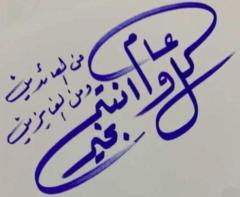 كل عام
وانتم
بخير
من العائدين
ومن الفايزين